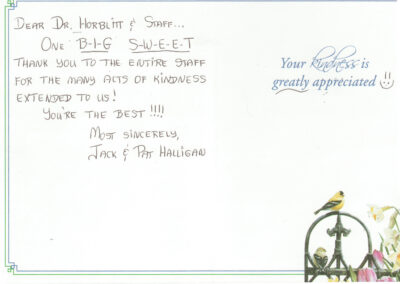 Dear Dr. Horblitt & Staff...
One B-I-G S-W-E-E-T
thank you to the entire staff
for the many acts of kindness
extended to us!
You're the best !!!!
Most sincerely,
Jack & Pat Halligan
Your kindness is
greatly appreciated